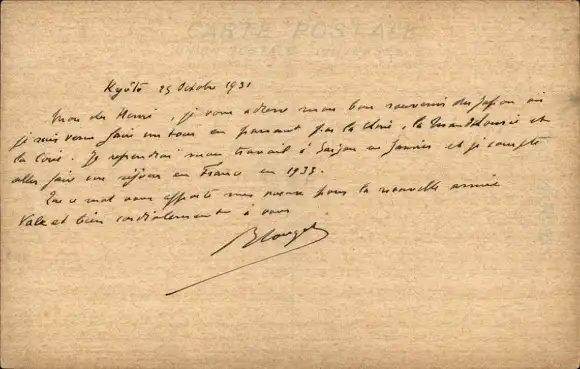 CARTE POSTALE
Kyôto 25 Octobre 1931
Mon cher Henri, je vous adresse mon bon souvenir du Japon où
je suis venu faire un tour en passant par la Chine, la Mandchourie et
la Corée. Je reprendrai mon travail à Saïgon en Janvier et je compte
aller faire un séjour en France en 1933.
Que ce mot vous apporte mes voeux pour la nouvelle année
Vale et bien cordialement à vous